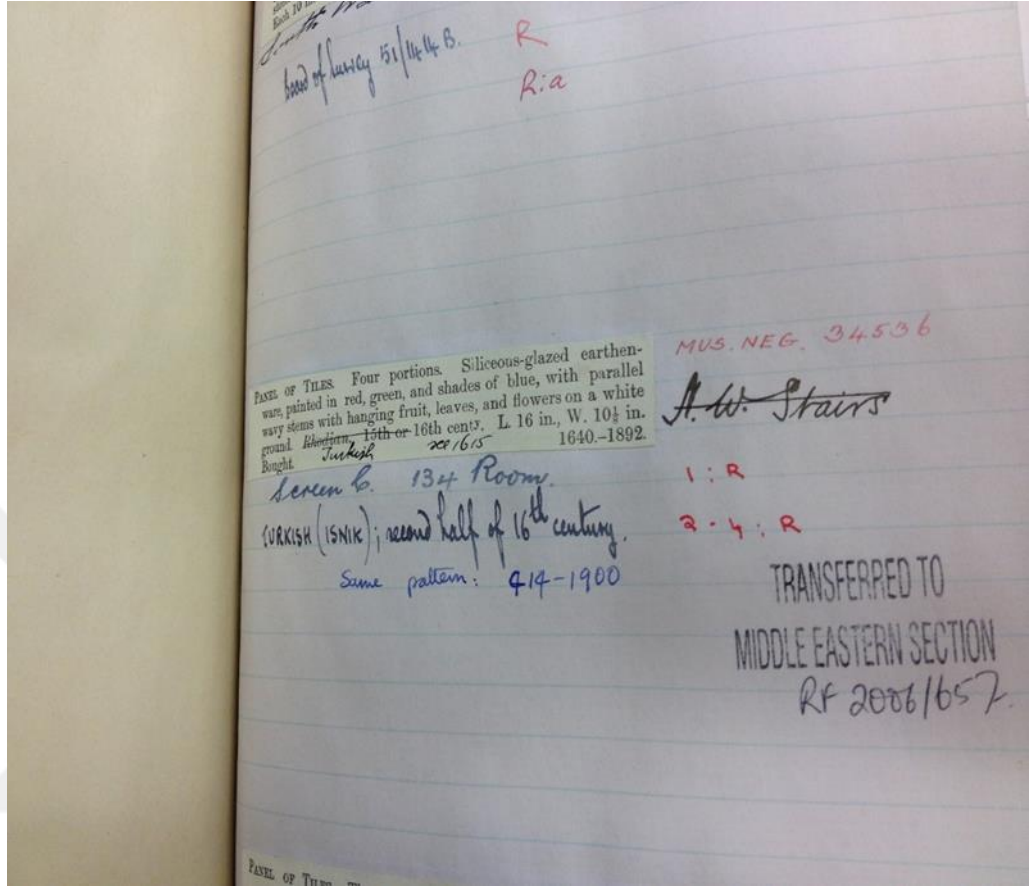 Each 10 in
South
Board of Survey 51/1414 B.
R
R:a
MUS. NEG. 34536
PANEL OF TILES. Four portions. Siliceous-glazed earthen-
ware, painted in red, green, and shades of blue, with parallel
wavy stems with hanging fruit, leaves, and flowers on a white
ground. Rhodian, 15th or 16th centy. L. 16 in., W. 10½ in.
Bought. Turkish see 1615 1640.-1892.
A. W. Stairs
Screen C. 134 Room.
1 : R
TURKISH (ISNIK); second half of 16th century.
2 - 4 : R
Same pattern: 414-1900
TRANSFERRED TO
MIDDLE EASTERN SECTION
RF 2006/657.
PANEL OF TILES.